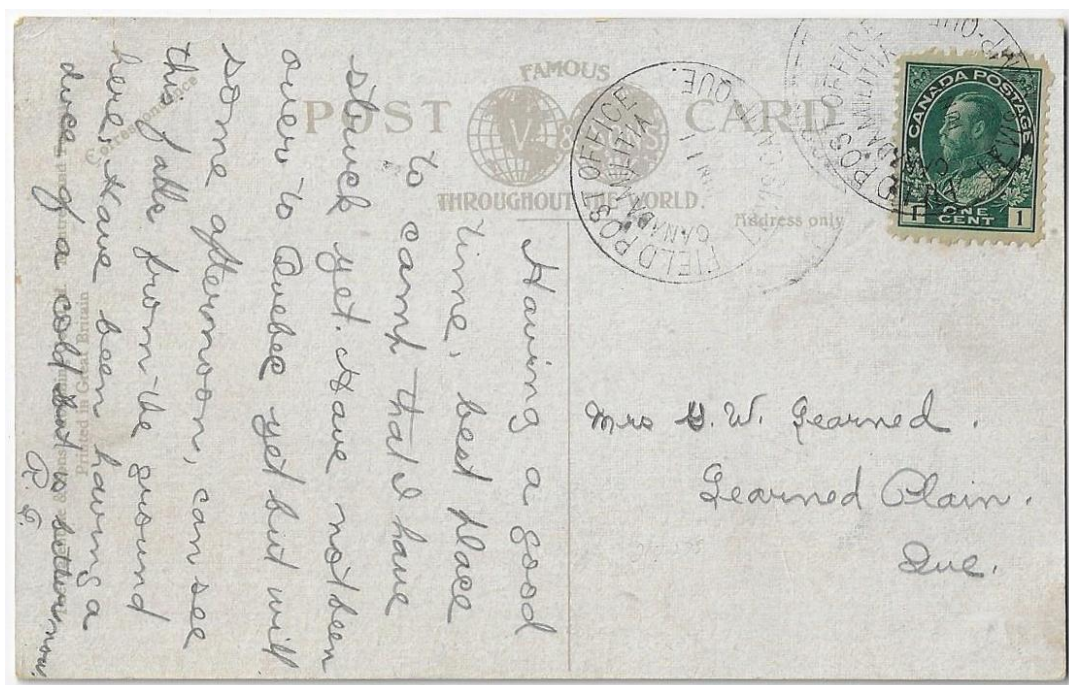 FAMOUS
POST CARD
V. & SONS
THROUGHOUT THE WORLD.
Correspondence
Address only
Printed in Great Britain
FIELD POST OFFICE
CANADA MILITIA
JUN 11
QUE.
CANADA POSTAGE
1 ONE CENT 1
Having a good
time, best place
to camp that I have
struck yet. Have not been
over to Quebec yet but will
some afternoon, can see
this falls from the ground
here. Have been having a
duce of a cold but is better now.
Mrs G. W. Learned.
Learned Plain.
Que.